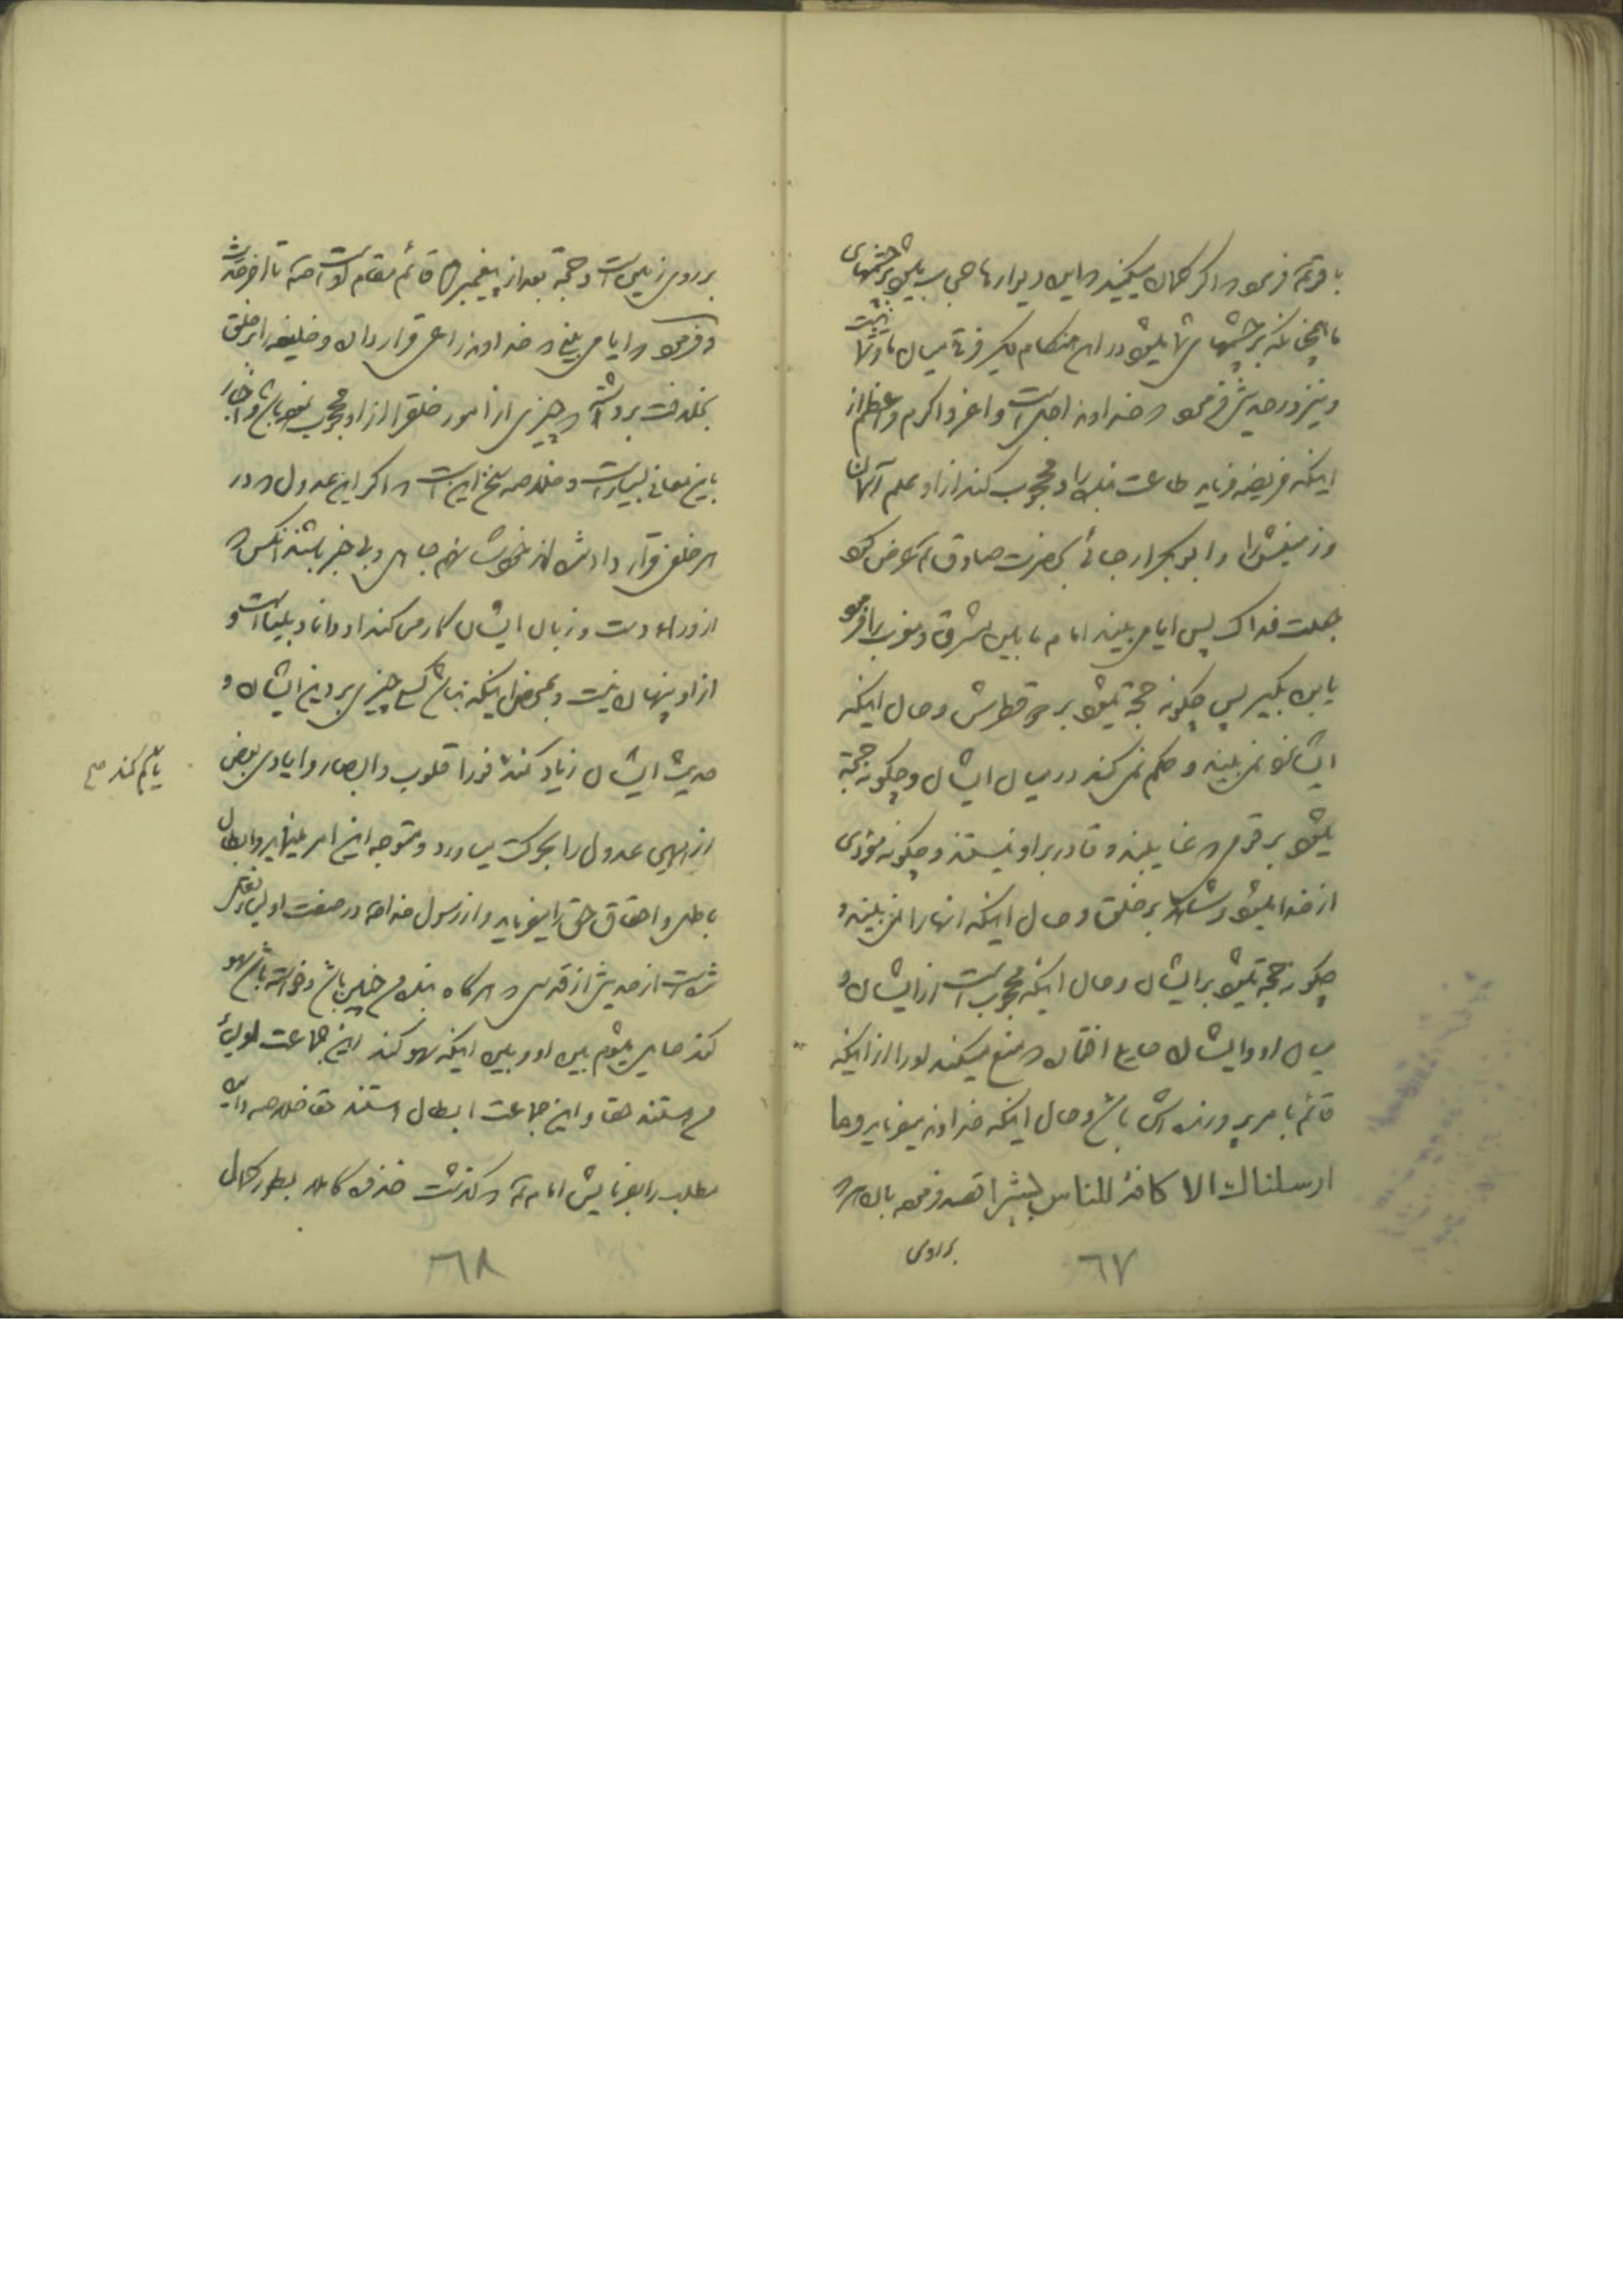 باقر ع فرمود که اگر گمان میکنید که این دیوارها حاجب میشود چشمهای
ما چنانکه چشمهای شما میشود در این هنگام پس فرقی میان ما و شما نیست
و نیز در حدیثی فرمود که خداوند اجل است و اعز و اکرم و اعظم از
اینکه فریضه فرماید طاعت بنده را و محجوب کند از او علم آسمان
و زمینش را و ابوبکر ارجائی بحضرت صادق ع عرض کرد
جعلت فداک پس ایا می بیند امام ما بین مشرق و مغرب را فرمود
یابن بکیر پس چگونه حجة میشود بر دو قطرش و حال اینکه
ایشانرا نمی بیند و حکم نمی کند در میان ایشان و چگونه حجة
میشود بر قومی که غایبند و قادر بر او نیستند و چگونه مؤدی
از خدا میشود و شاهد بر خلق و حال اینکه انها را نمی بیند و
چگونه حجة میشود بر ایشان و حال اینکه محجوب است از ایشان و
میان او و ایشان مانع افتاده که منع میکند او را از اینکه
قائم بامر پروردگارش باشد و حال اینکه خداوند میفرماید و ما
ارسلناک الا کافة للناس بشیرا قصد فرموده بان هر که
بر روی
٦٧
بر روی زمین است و حجة بعد از پیغمبر ص قائم مقام او است
و فرمود که ایا می بینی که خداوند راعی قرار داده و خلیفه را بر خلق
بخلافت برداشته که چیزی از امور خلق را از او محجوب نموده باشد و اخبار
باین معانی بسیار است و خلاصه سخن این است که اگر این عدول که در
هر خلفی قرار داده شده اند خودشان هم جاهل و بی خبر باشند انکس که
از وراء دست و زبان ایشان کار می کند او دانا و بینا است و
از او پنهان نیست و بمحض اینکه بناشد کسی چیزی بر دین ایشان و
حدیث ایشان زیاد کند فورا قلوب و ابصار و ایادی بعض
یا کم کند صح
از این عدول را بحرکت میاورد و متوجه این امر مینماید و ابطال
باطل و احقاق حق را میفرماید و از رسول خدا ص در صفت اولیاء
است از حدیثی از قدسی که هرگاه بنده من چنین باشد و خواسته باشد سهو
کند حایل میشوم بین او و بین اینکه سهو کند این جماعت اولیاء
من هستند حقا و این جماعت ابطال هستند حقا خلاصه و این
مطلب را بفرمایش امام ع که گذشت حذف کامله بطور کمال
٦٨